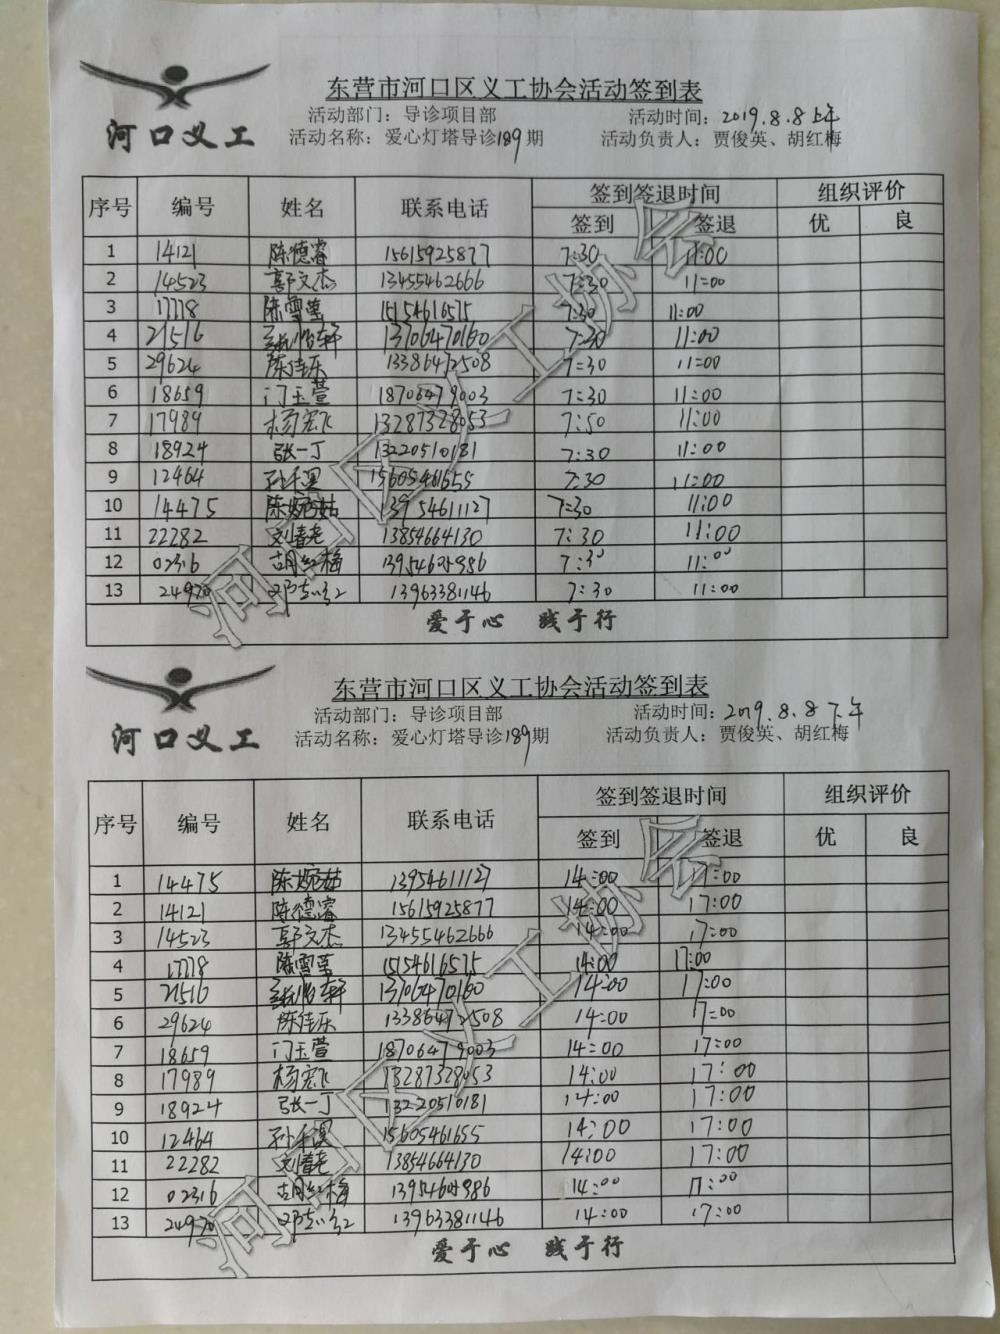 河口义工
东营市河口区义工协会活动签到表
活动部门：导诊项目部 活动时间：2019.8.8上午
活动名称：爱心灯塔导诊189期 活动负责人：贾俊英、胡红梅
序号 编号 姓名 联系电话 签到签退时间 组织评价
签到 签退 优 良
1 14121 陈德睿 15615925877 7:30 11:00
2 14523 郭文杰 13455462666 7:30 11:00
3 17778 陈雪莹 15154616575 7:30 11:00
4 21516 13706470160 7:30 11:00
5 29624 陈佳乐 13386472508 7:30 11:00
6 18659 门玉萱 18706479003 7:30 11:00
7 17989 杨宏飞 13287328053 7:50 11:00
8 18924 张一丁 13220510181 7:30 11:00
9 12464 15605461655 7:30 11:00
10 14475 陈婉茹 13954611127 7:30 11:00
11 22282 刘春老 13854664130 7:30 11:00
12 02316 胡红梅 7:30 11:00
13 24970 13963381146 7:30 11:00
爱于心 践于行
河口区义工协会
河口义工
东营市河口区义工协会活动签到表
活动部门：导诊项目部 活动时间：2019.8.8下午
活动名称：爱心灯塔导诊189期 活动负责人：贾俊英、胡红梅
序号 编号 姓名 联系电话 签到签退时间 组织评价
签到 签退 优 良
1 14475 陈婉茹 13954611127 14:00 17:00
2 14121 陈德睿 15615925877 14:00 17:00
3 14523 郭文杰 13455462666 14:00 17:00
4 17778 陈雪莹 15154616575 14:00 17:00
5 21516 13706470160 14:00 17:00
6 29624 陈佳乐 13386472508 14:00 17:00
7 18659 门玉萱 18706479003 14:00 17:00
8 17989 杨宏飞 13287328053 14:00 17:00
9 18924 张一丁 13220510181 14:00 17:00
10 12464 15605461655 14:00 17:00
11 22282 刘春老 13854664130 14:00 17:00
12 02316 胡红梅 14:00 17:00
13 24970 13963381146 14:00 17:00
爱于心 践于行
河口区义工协会